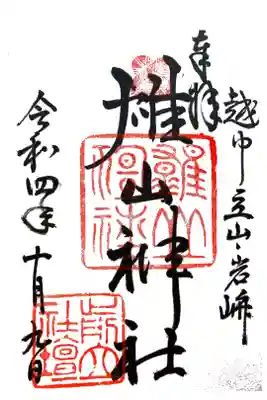 奉拝
越中立山岩峅
雄山神社
雄山神社
令和四年十月九日
前立社壇